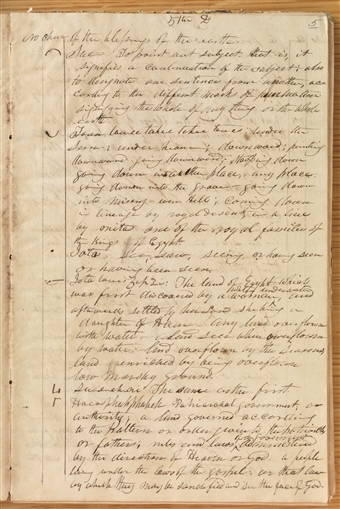 5th D
5
of the blessings of the earth
Sue - To point out subject that is, it
signifies a continuation of the subject; also
to designate one sentence from another, ac=
cording to the different mark of punctuation
signifying the whole of any thing or the whole
earth
under the
Serve; under heaven; downward; pointing
downward going downward; Nothing down
going down into another place, any place:
going down into the grave - going down
into misery - even Hell; coming down
in lineage by royal descent, in a line
by onitas one of the royal families of
the Kings of Egypt
Iota See, saw, seeing, or having seen
or having been seen
Iota The land of Egypt which
was first discovered by a woman, and
while under water
afterwards settled by her Sons she being a
daughter of Ham - Any land overflown
with water - Land seen when overflown
by water: Land overflown by the seasons
land enriched by being overflown
low marshy ground
The same as the first
Patriarchal government, or
authority; a land governed according
to the pattern or order given to the patriarchs
or fathers; rules and laws administered
by the direction of Heaven or God. a people
living under the laws of the gospel: or that law
by which they may be sanctified and see the face of God